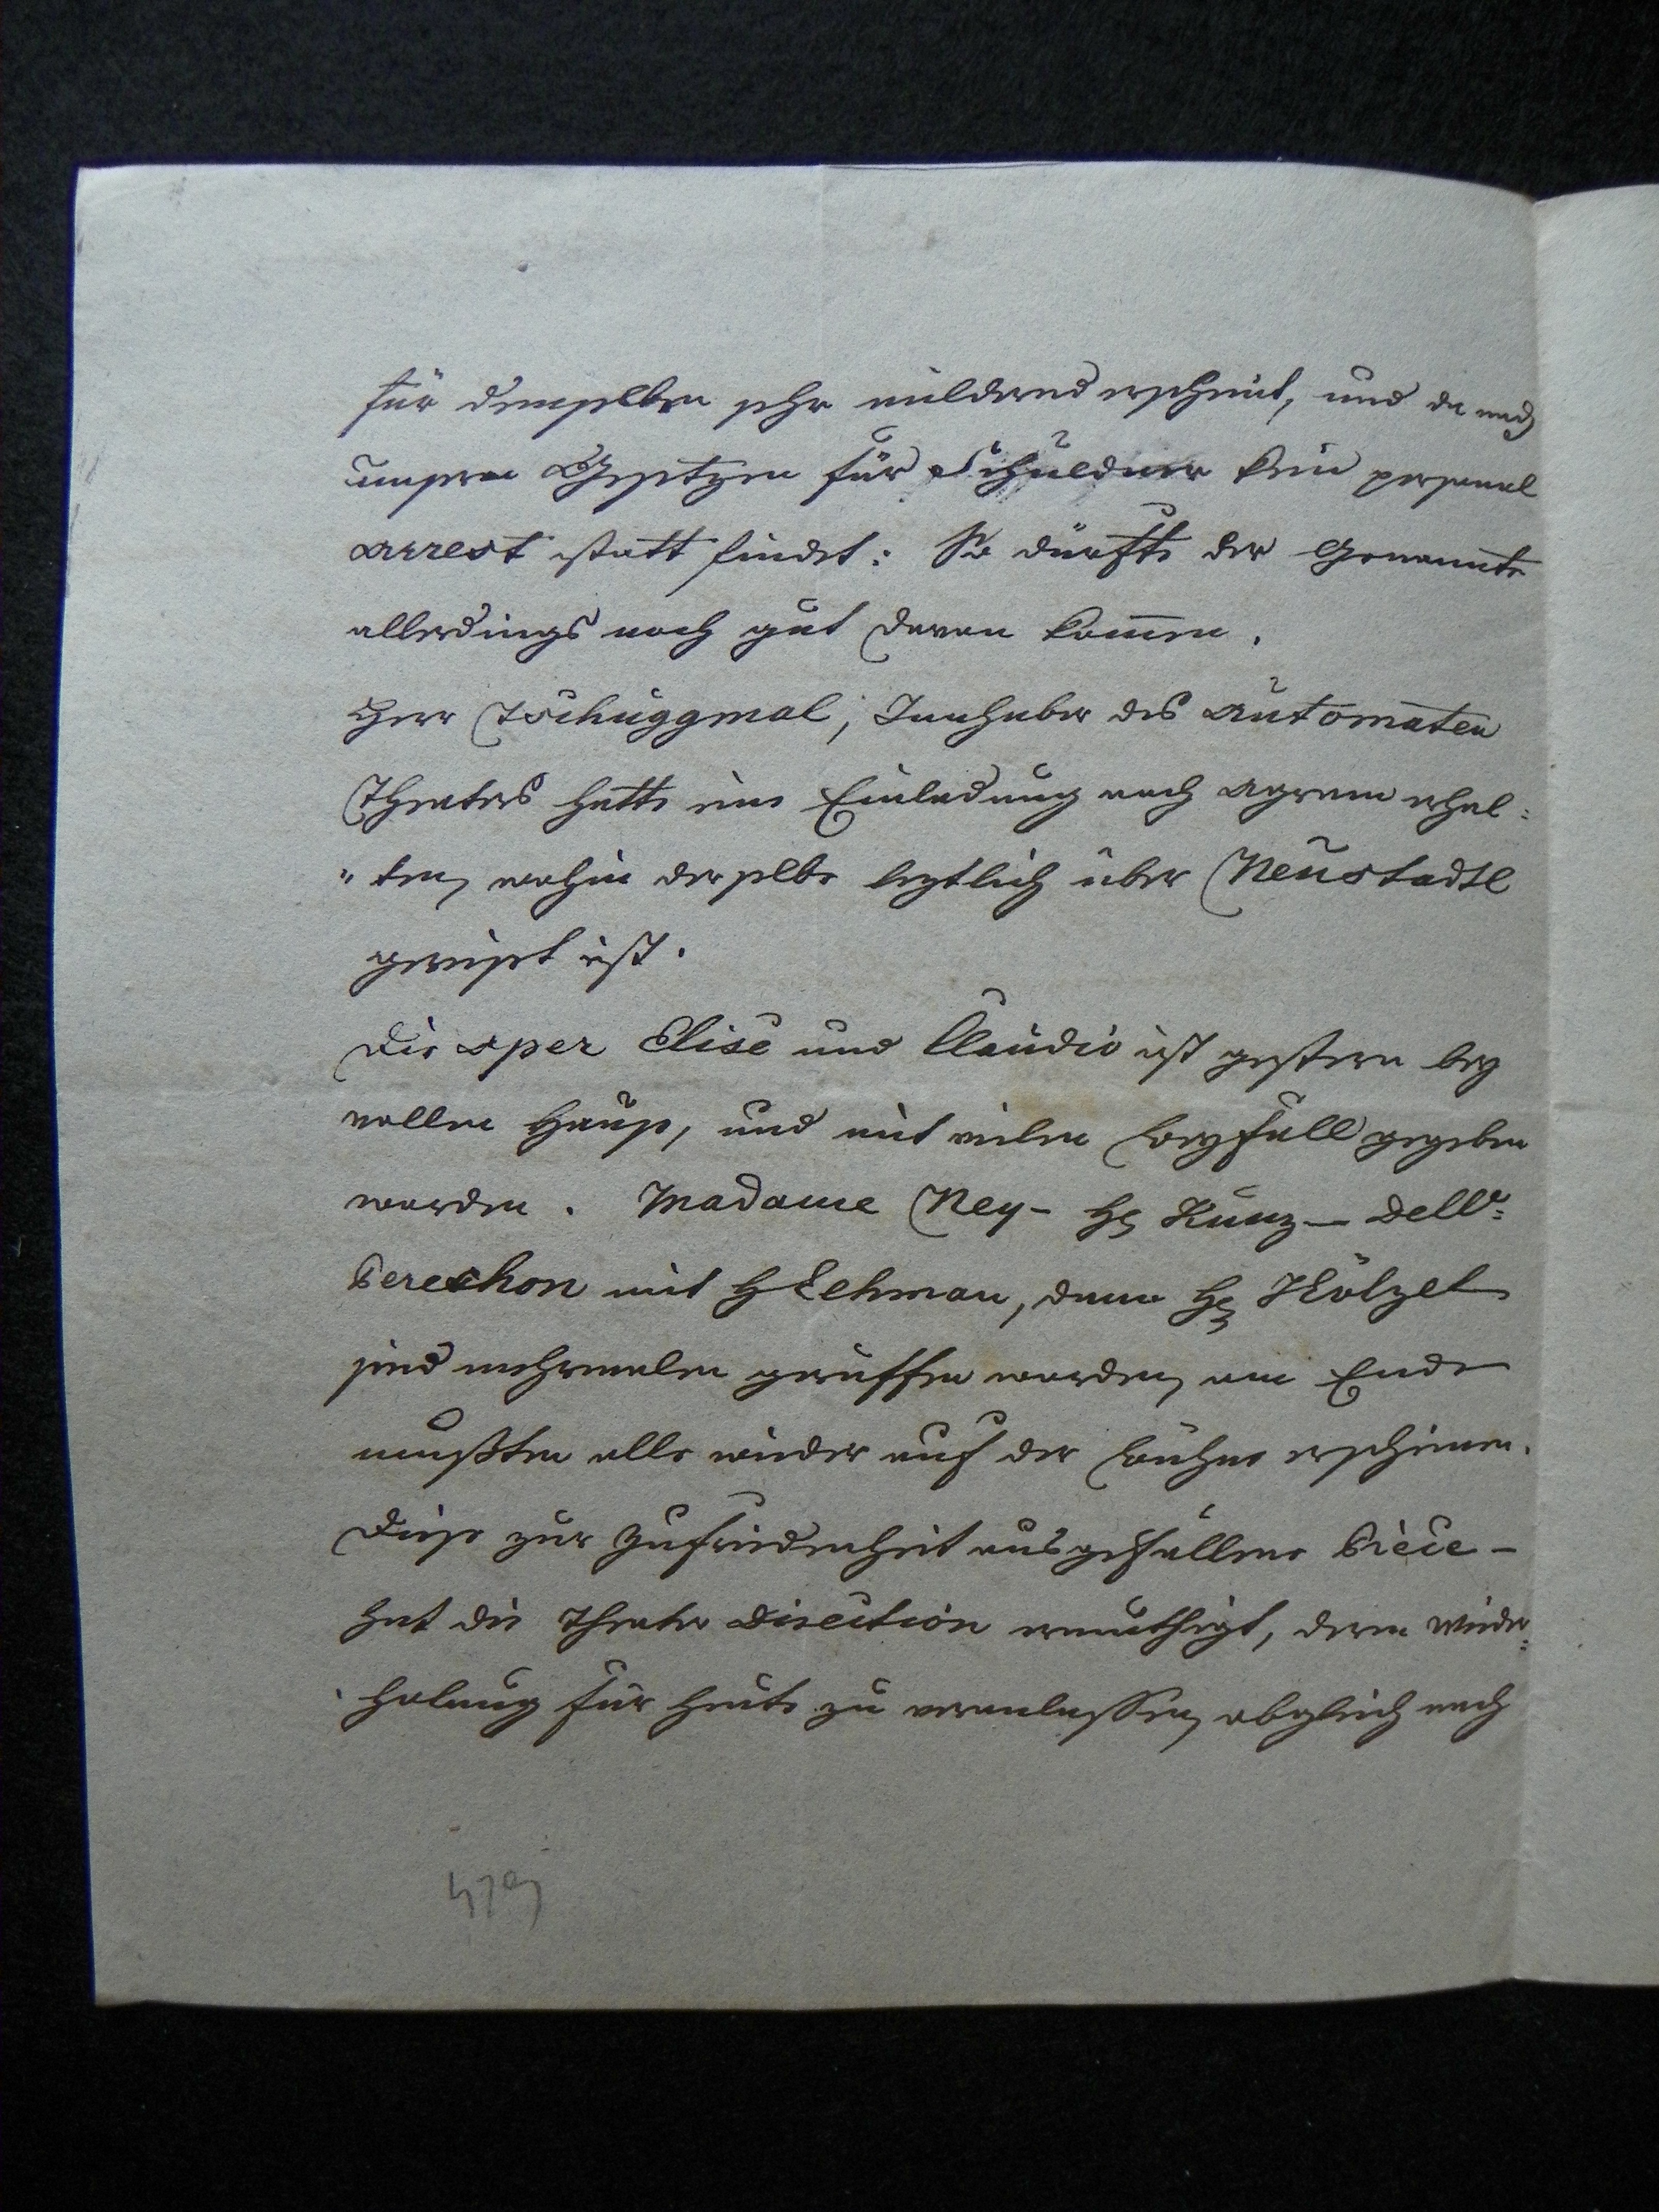 für demselben sehr mildernd erscheint, und da nach
unseren Gesetzen für Schuldner kein personal
arrest statt findet: So dürfte der Genannte
allerdings noch gut davon kom̅en.
Herr Tschuggmal, Innhaber des Automaten
Theaters hatte eine Einladung nach Agram erhal=
"ten, wohin derselbe leztlich über Neustadtl
gereiset ist.
Die Oper Elise und Claudio ist gestern bey
vollen Hause, und mit vielen Beyfall gegeben
worden. Madame Ney – H Kunz – Dell͟e:
Perechon mit H Eehman, dann H Hölzel
sind mehrmalen geruffen worden, am Ende
mußten alle wieder auf der Bühne erscheinen.
Diese zur Zufriedenheit ausgefallene Piece –
hat die Theater Direction ermuthigt, deren Wieder=
holung für heute zu veranlassen, obgleich nach